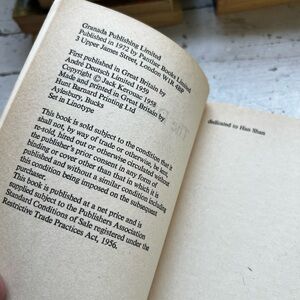 Granada Publishing Limited
Published in 1972 by Panther Books Limited
3 Upper James Street, London W1R 4BP
First published in Great Britain by
André Deutsch Limited 1959
Copyright © Jack Kerouac 1958
Made and printed in Great Britain by
Hunt Barnard Printing Ltd
Aylesbury, Bucks
Set in Linotype
This book is sold subject to the condition that it
shall not, by way of trade or otherwise, be lent,
re-sold, hired out or otherwise circulated without
the publisher's prior consent in any form of
binding or cover other than that in which it is
published and without a similar condition including
this condition being imposed on the subsequent
purchaser.
This book is published at a net price and is
supplied subject to the Publishers Association
Standard Conditions of Sale registered under the
Restrictive Trade Practices Act, 1956.
dedicated to Han Shan